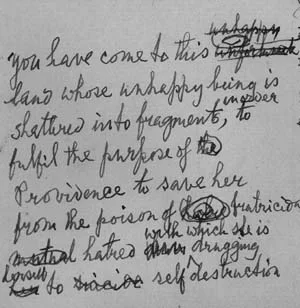 unhappy
you have come to this unfortunate
land whose unhappy being is
shattered into fragments, in order to
fulfil the purpose of
Providence to save her
from the poison of fratricidal
mutual hatred with which she is drugging
herself to suicide self destruction